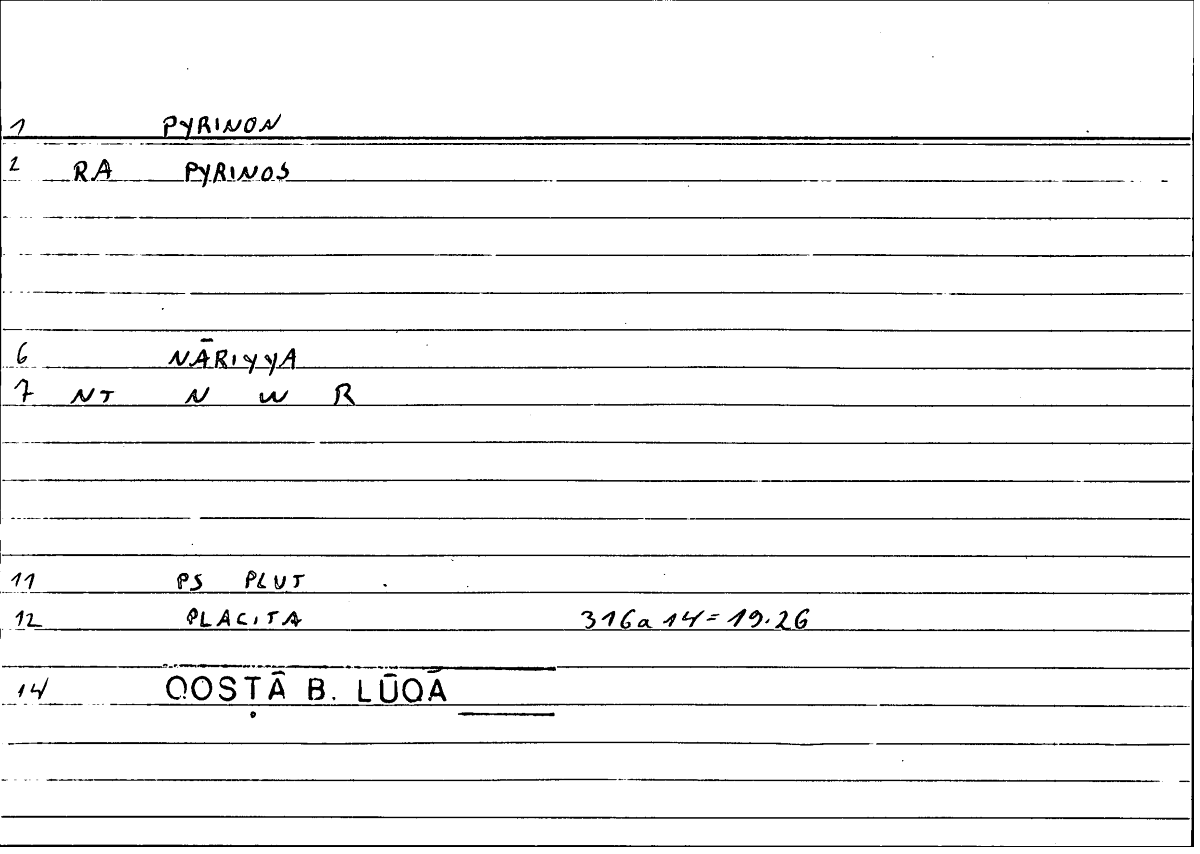 1 PYRINON
2 RA PYRINOS
6 NĀRIYYA
7 NT N W R
11 PS PLUT
12 PLACITA 316a14=19.26
14 QOSṬĀ B. LŪQĀ